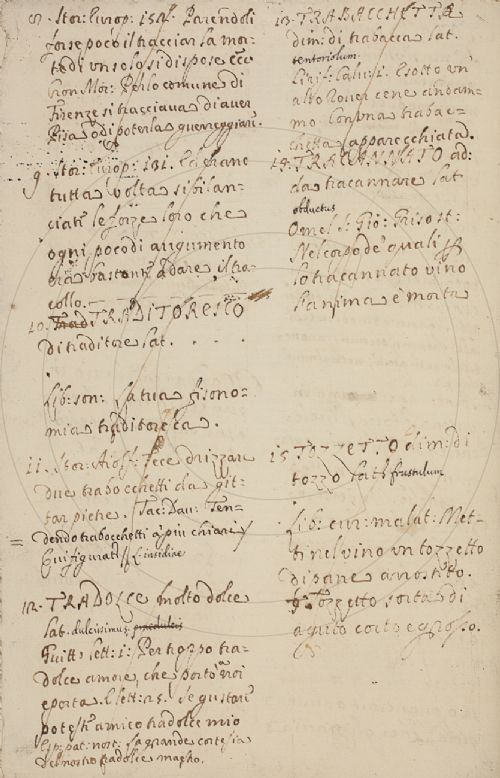 8. Stor: Europ: 151. Parendoli
forse poco il tracciar la mor-
te di un solo si dispose Ecc
Cron Mor: Per lo comune di
Firenze si tracciava di aver
Pisa o di poterla guerreggiare.
9. Stor: Europ: 131. Ed erano
tutta volta si bilan-
ciate le forze loro che
ogni poco di augumento
era bastante a dare il tra-
collo.
10. Trad TRADITORESCO
di traditore Lat. . . .
Lib: son: La tua fisono-
mia traditoresca.
11. Stor: Aiolf: Fece drizzare
due trabocchetti da git-
tar pietre. Tac: Dav: Ten-
dendo trabocchetti a' più chiari
Qui figurat: L. insidiae
12. TRADOLCE Molto dolce
Lat. dulcissimus praedulcis
Guitt: lett: 1: Per troppo tra-
dolce amore, che portò a noi
e porta. E lett: 25. Se gustare
potesti amico tradolce mio
Esp: pat: nost: La grande cortesia
del nostro tradolce
13. TRABACCHETTA
dim: di trabacca Lat.
tentoriolum.
altro
mo con una trabac-
chetta apparecchiata.
14. TRACANNATO ad:
da tracannare Lat
obductus
Omel: S: Gio: Grisost:
Nel corpo de' quali
lo tracannato vino
l'anima è morta
15. TOZZETTO dim: di
tozzo Lat: frustulum
Lib: cur: malat: Met-
ti nel vino un tozzetto
di pane arrostito.
Tozzetto sorta di
aguto corto e grosso.